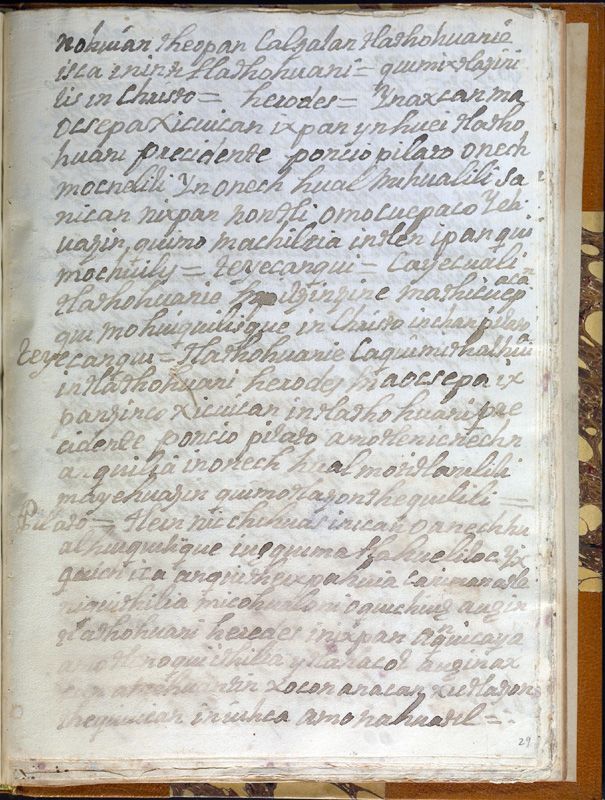 nohuian theopan calzalan tlathohuanie
isca ynin tlathohuani = quimixtlazini
lis in Christo = herodes = Ynaxcan ma
ocsepa xicuican ixpan yn huei tlatho
huani precidente poncio pilato onech
mocnelili Yn onech hual mihualili sa
nican nixpan nontli omocuepaco Yeh
uazin, quimo machiltia intlen ipan qui
mochiuily = teyecanqui = Ca yecuali
tlathohuanie
qui mohuiquilisque in Christo inchan pilato
teyecanqui = tlathohuanie caquimithalhui
in tlathohuani herodes ma ocsepa ix
panzinco xicuican in tlathohuani pre
cidente poncio pilato amotlenicnechn
anquilia in onech hual motitlanilili
ma yehuazin quimotlazonthequilili =
Pilato = tlein nicchihuas nican oanechhu
al huiquilique in quima tlahueliloc Yx
quich ica anquitheixpahuia
niquithilia micohualoni oquichiuh anzin
tlathohuani herodes inixpan oquicaya
amo tleno quithilia ytlahtlacol anzin ax
can amehuantin xoconanacan xictlazon
thequican in iuhca amo nahuatil =
29